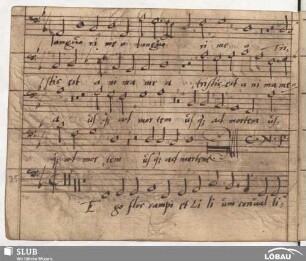 ri me a
ri me a tri-
stis est a ni ma me a tristis est a ni ma me-
a, usq; ad mor tem usq; ad mortem us-
q; ad mor tem usq; ad mortem
35
E go flos campi et Li li um conval li-
SLUB
Wir führen Wissen.
LÖBAU